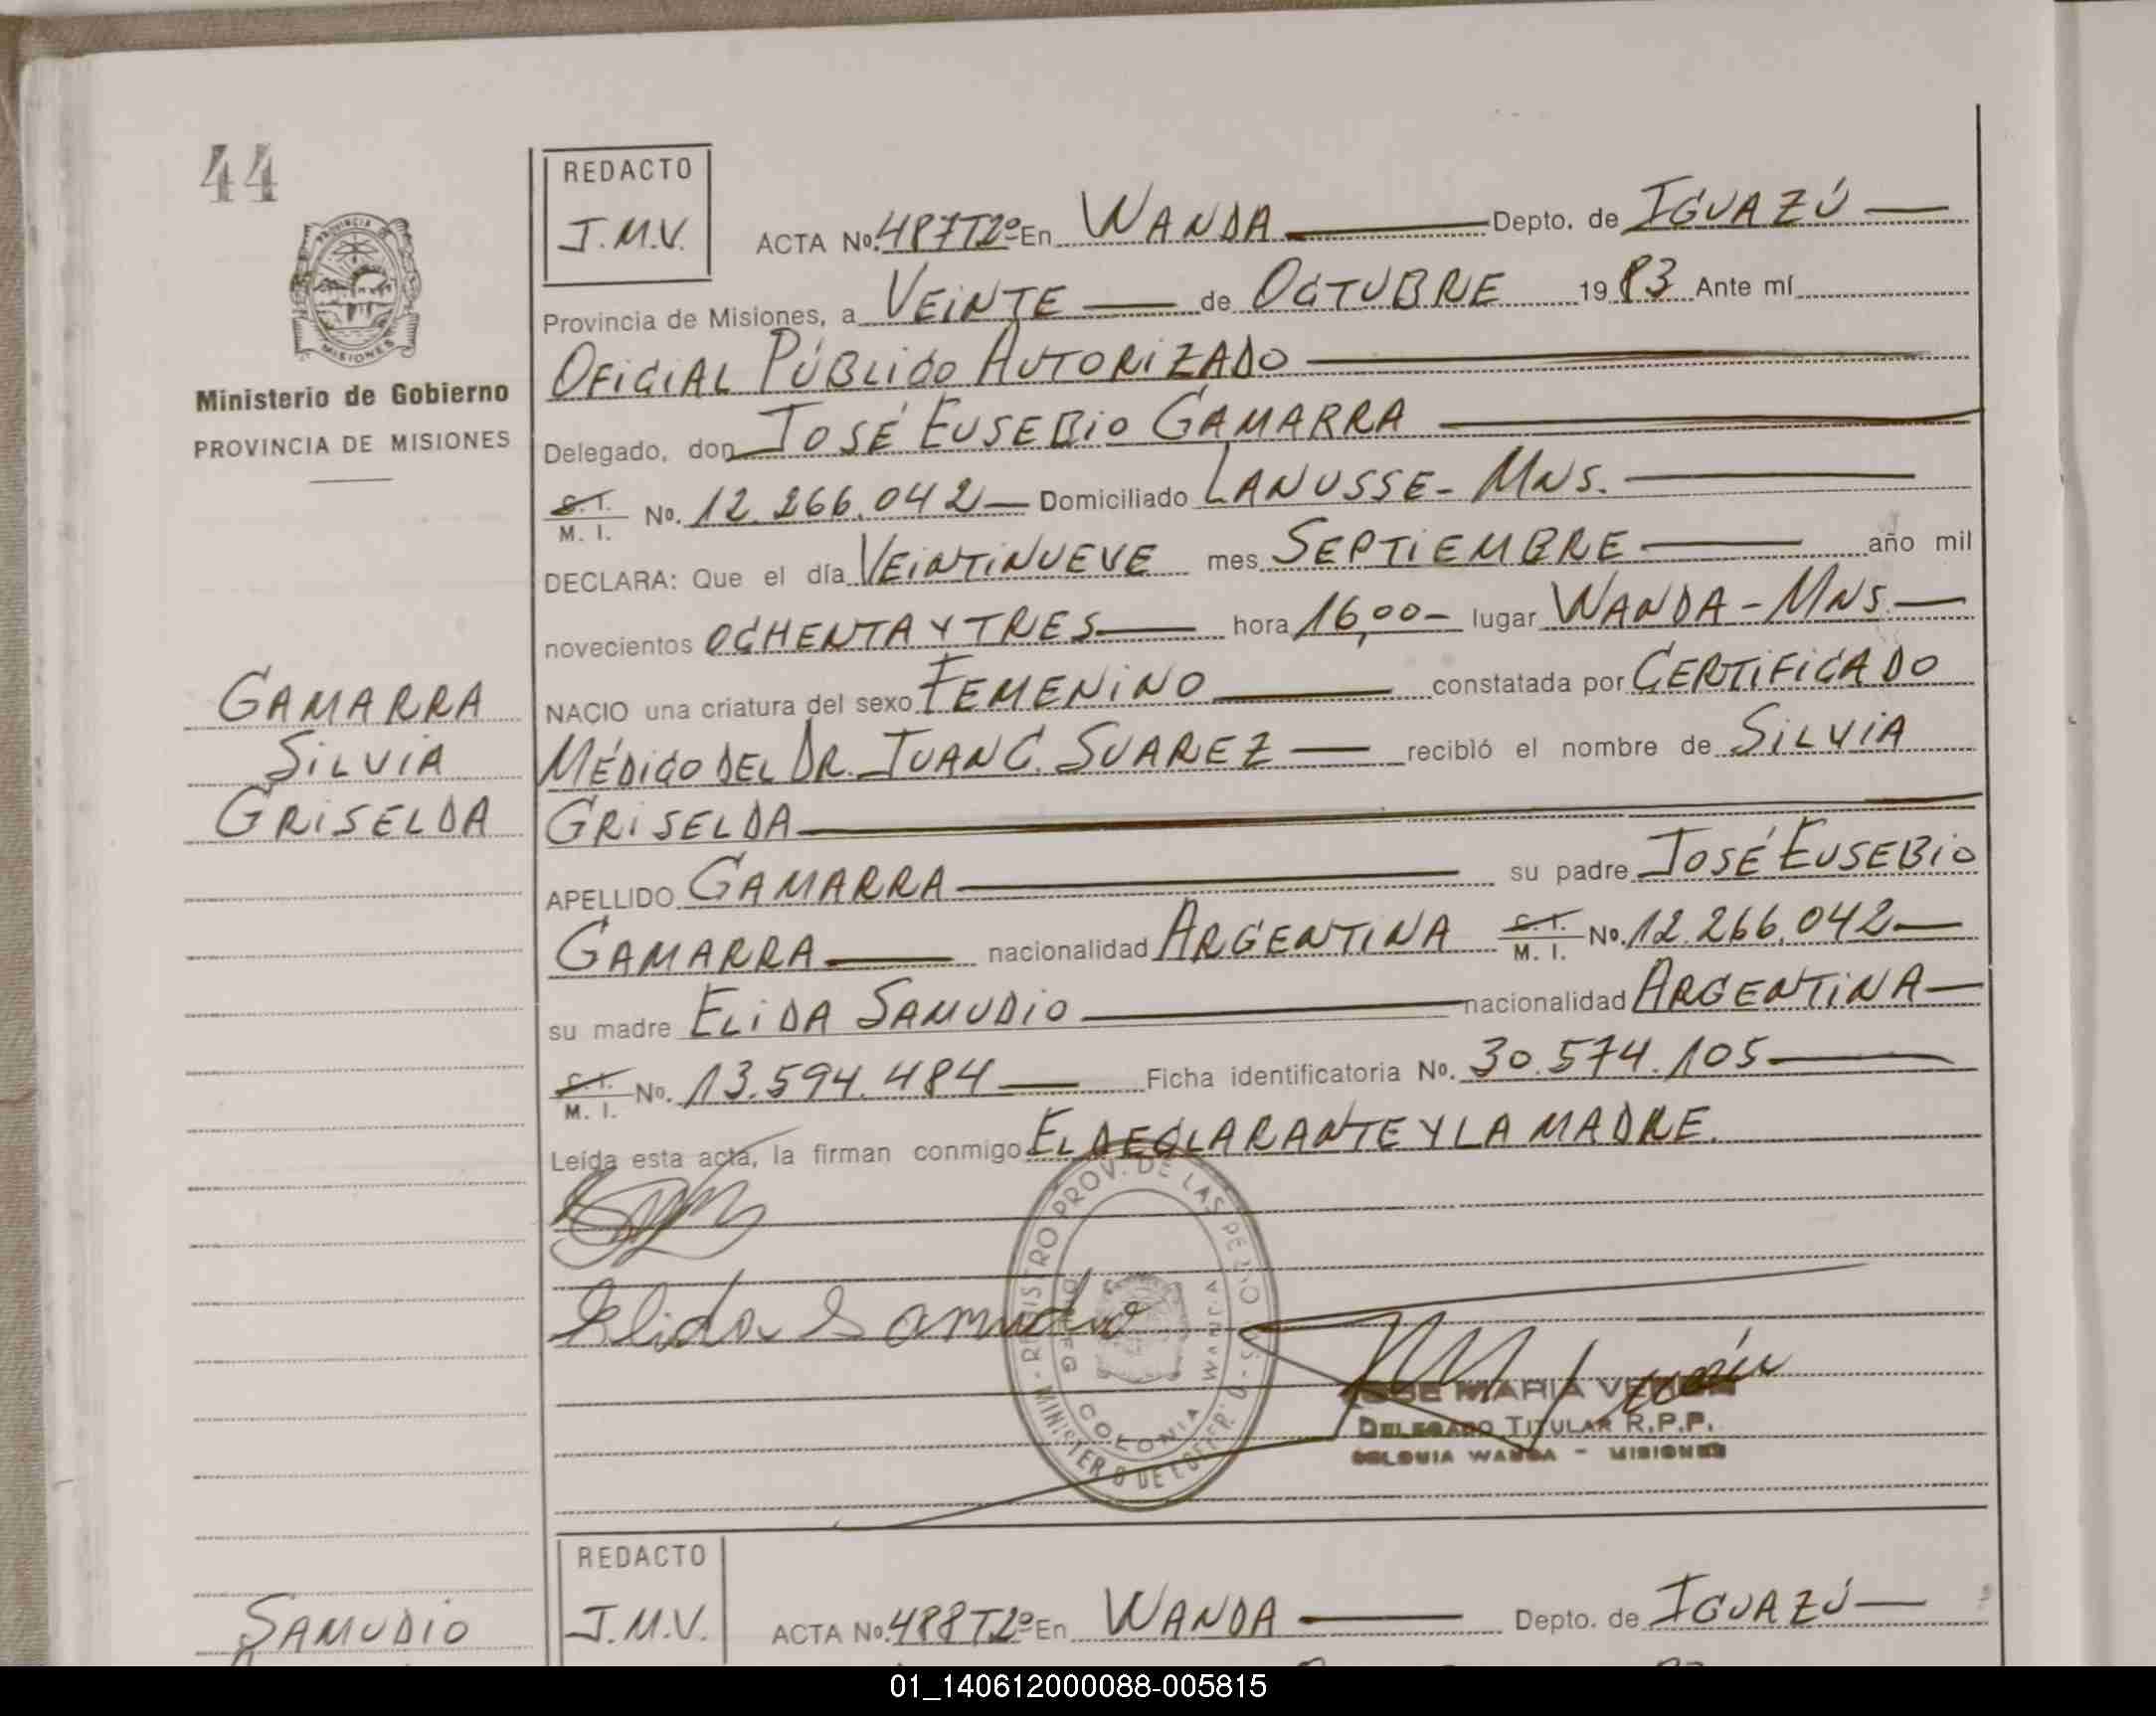 44
REDACTO
J.M.V.
ACTA No. 487T2º En WANDA Depto. de IGUAZÚ
Provincia de Misiones, a VEINTE de OCTUBRE 1983 Ante mí
OFICIAL PÚBLICO AUTORIZADO
Delegado, don JOSÉ EUSEBIO GAMARRA
C.I. M. I. No. 12.266.042 Domiciliado LANUSSE - MNS.
DECLARA: Que el día VEINTINUEVE mes SEPTIEMBRE año mil
novecientos OCHENTA Y TRES hora 16,00 - lugar WANDA - MNS
NACIO una criatura del sexo FEMENINO constatada por CERTIFICADO
MÉDICO DEL DR. JUAN C. SUAREZ recibió el nombre de SILVIA
GRISELDA
APELLIDO GAMARRA su padre JOSÉ EUSEBIO
GAMARRA nacionalidad ARGENTINA C.I. M. I. No. 12.266.042
su madre ELIDA SAMUDIO nacionalidad ARGENTINA
C.I. M. I. No. 13.594.484 Ficha identificatoria No. 30.574.105
Leída esta acta, la firman conmigo EL DECLARANTE Y LA MADRE.
Elida Samudio
MINISTERIO DE - REGISTRO PROV. DE LAS PER
DELEG COLONIA WANDA
JOSE MARIA
DELEGADO TITULAR R.P.P.
COLONIA WANDA - MISIONES
PROVINCIA
MISIONES
Ministerio de Gobierno
PROVINCIA DE MISIONES
GAMARRA
SILVIA
GRISELDA
REDACTO
J.M.V.
ACTA No. 488T2º En WANDA Depto. de IGUAZÚ
SAMUDIO
01_140612000088-005815